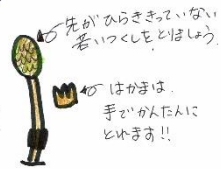 先がひらききっていない
若いつくしをとりましょう。
はかまは
手でかんたんに
とれます!!